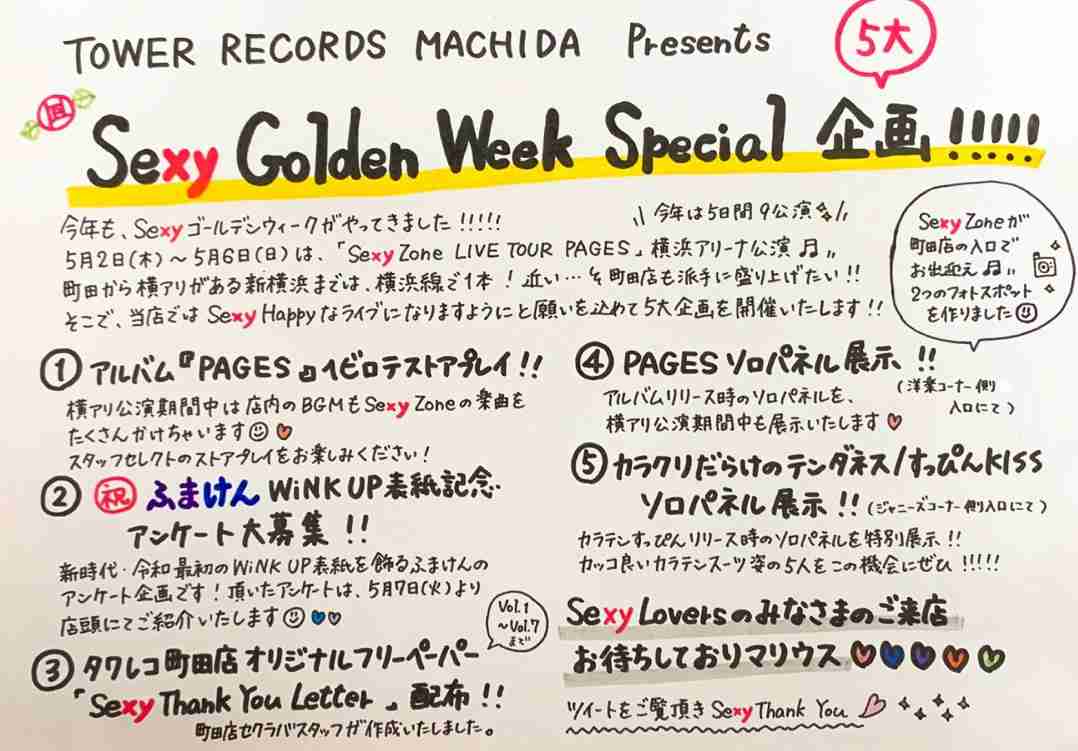 TOWER RECORDS MACHIDA Presents
5大
Sexy Golden Week Special 企画!!!!!
今年も、Sexyゴールデンウィークがやってきました!!!!!
\\ 今年は5日間9公演 //
5月2日(木)~5月6日(日)は、「Sexy Zone LIVE TOUR PAGES」横浜アリーナ公演♬〃
町田から横アリがある新横浜までは、横浜線で1本!近い…々町田店も派手に盛り上げたい!!
そこで、当店ではSexy Happyなライブになりますようにと願いを込めて5大企画を開催いたします!!
Sexy Zoneが
町田店の入口で
お出迎え♬〃
2つのフォトスポット
を作りました☺
① アルバム『PAGES』ヘビロテストアプレイ!!
横アリ公演期間中は店内のBGMもSexy Zoneの楽曲を
たくさんかけちゃいます☺♡
スタッフセレクトのストアプレイをお楽しみください!
② 祝 ふまけん WiNK UP表紙記念
アンケート大募集!!
新時代・令和最初のWiNK UP表紙を飾るふまけんの
アンケート企画です!頂いたアンケートは、5月7日(火)より
店頭にてご紹介いたします☺♡♡
③ タワレコ町田店オリジナルフリーペーパー
「Sexy Thank You Letter」配布!!
Vol.1
~Vol.7
まで
町田店セクラバスタッフが作成いたしました。
④ PAGESソロパネル展示!!
(洋楽コーナー側
入口にて)
アルバムリリース時のソロパネルを、
横アリ公演期間中も展示いたします♡
⑤ カラクリだらけのテンダネス/すっぴんKISS
ソロパネル展示!!(ジャニーズコーナー側入口にて)
カラテンすっぴんリリース時のソロパネルを特別展示!!
カッコ良いカラテンスーツ姿の5人をこの機会にぜひ!!!!!
Sexy Loversのみなさまのご来店
お待ちしておりマリウス♡♡♡♡♡
ツイートをご覧頂きSexy Thank You♡